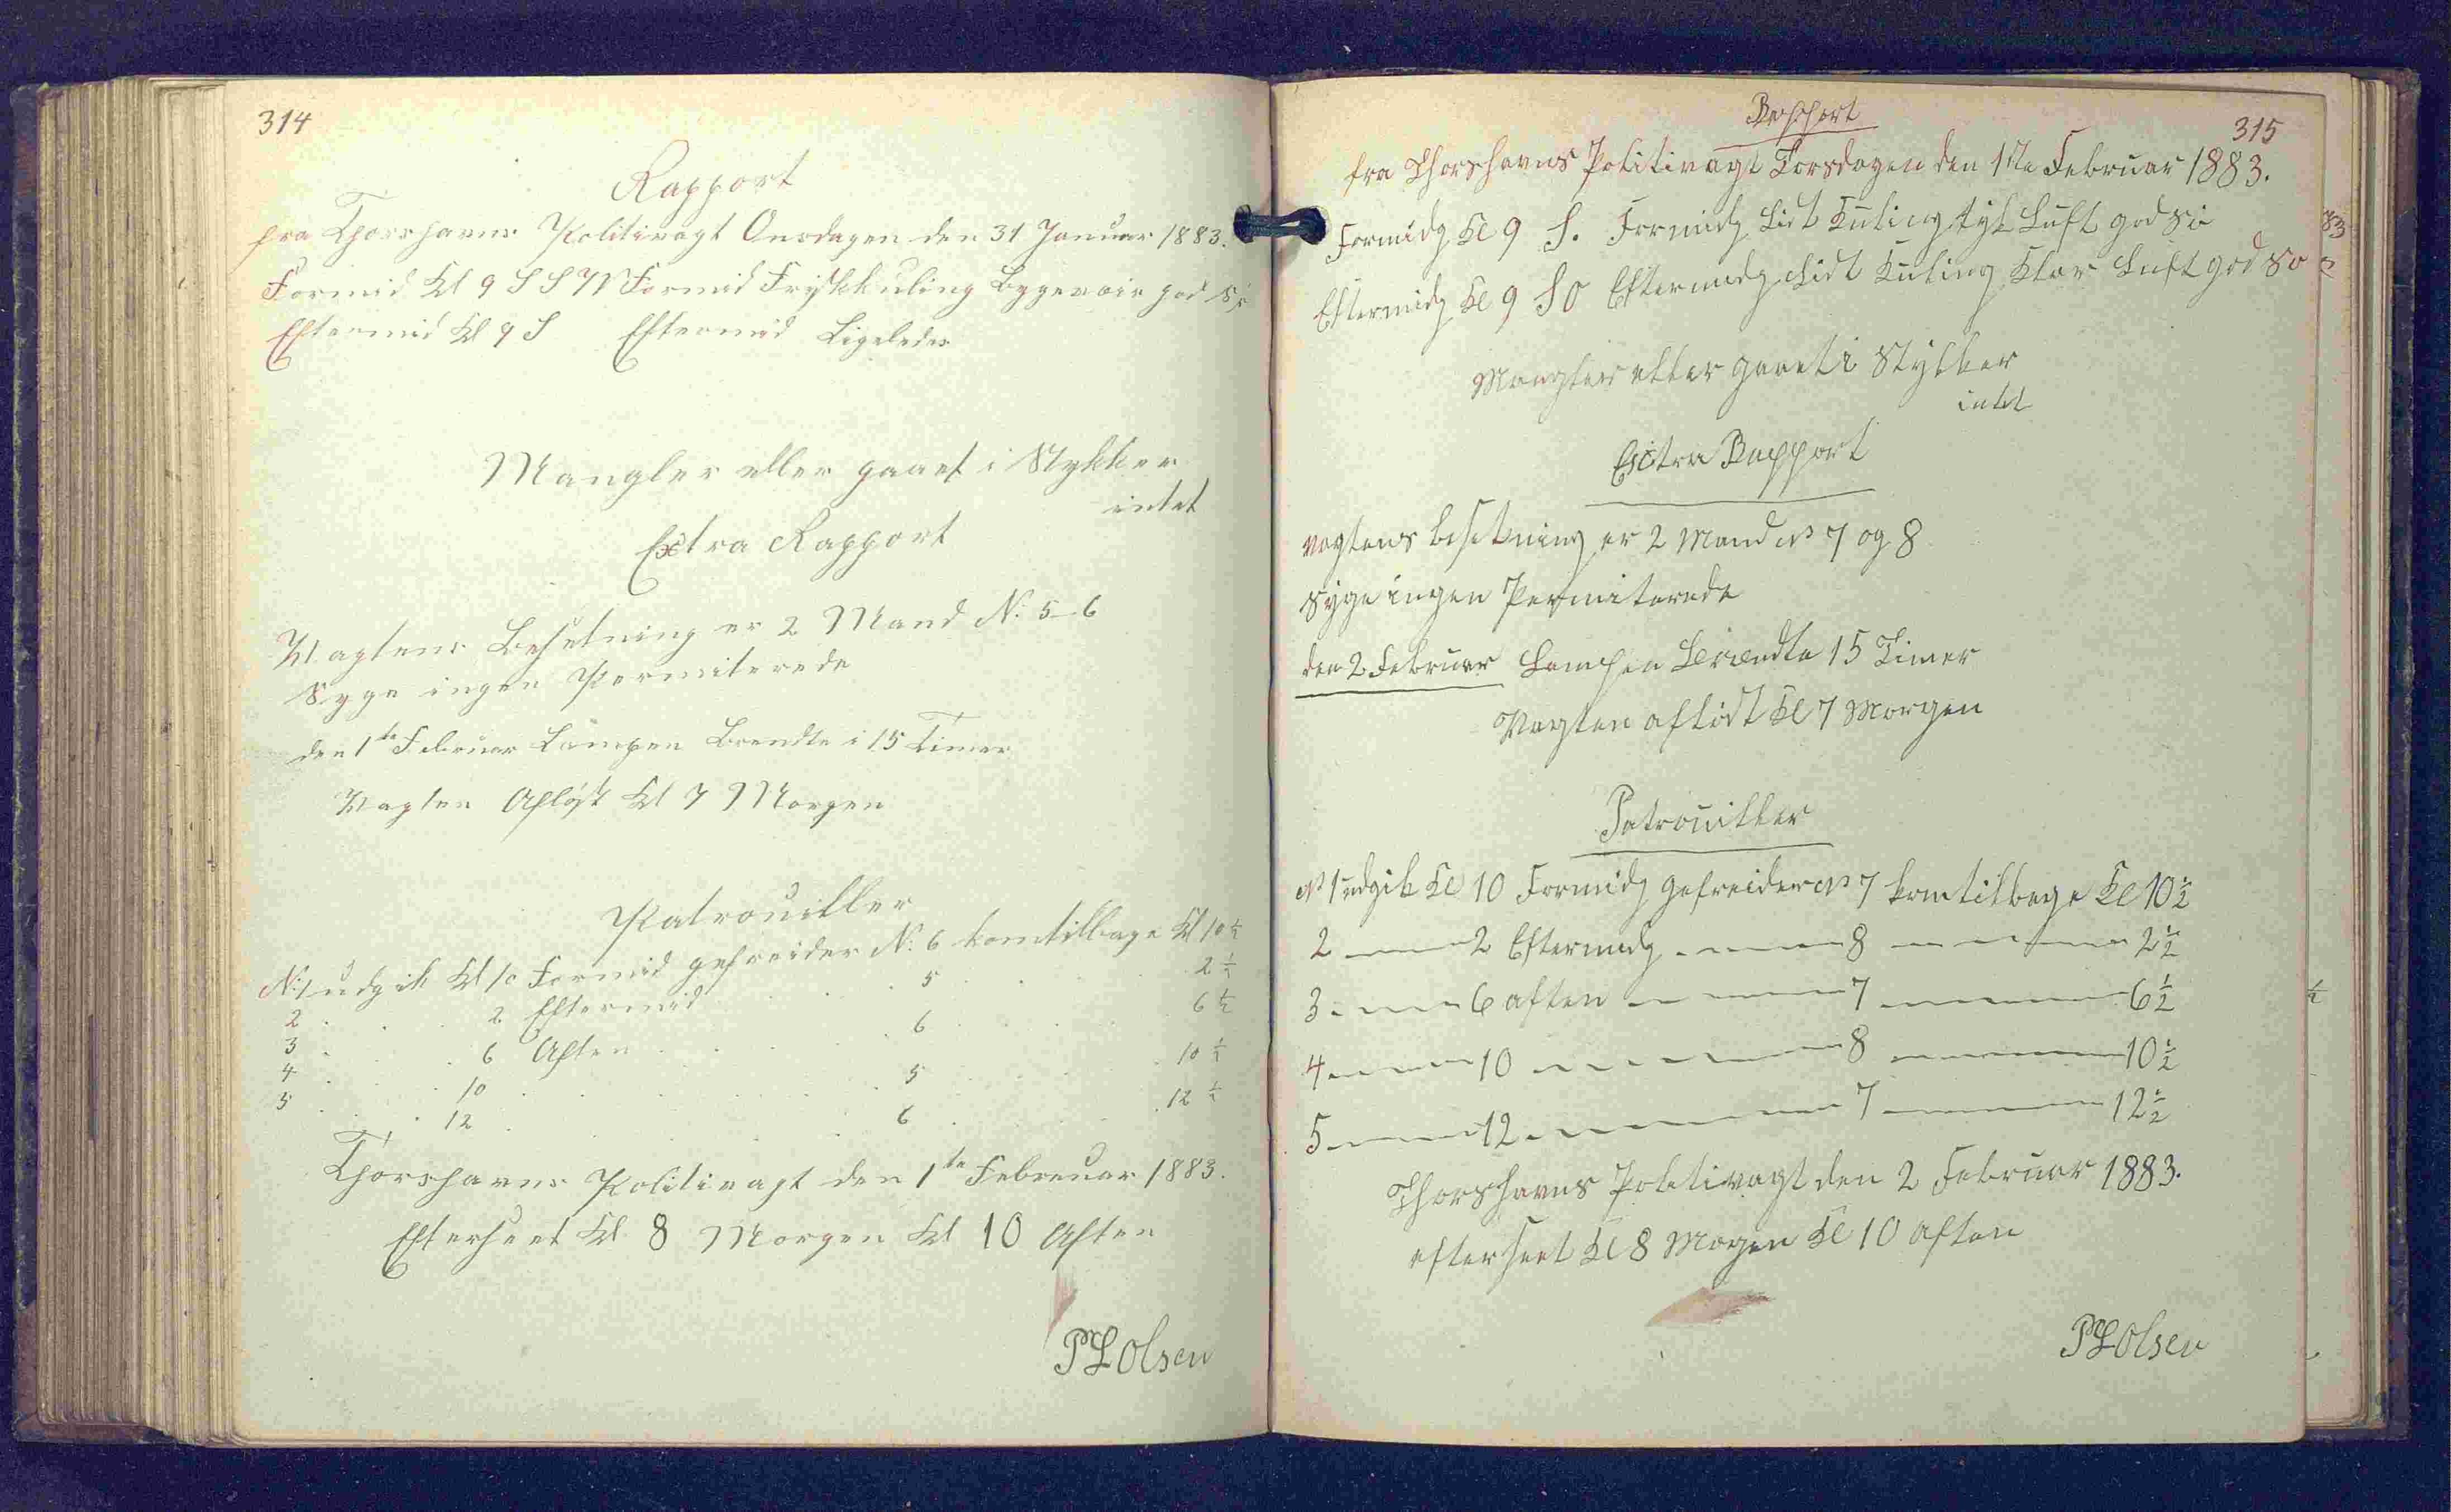 314
Rapport
fra Thorshavns Politivagt Onsdagen den 31 Januar 1883.
Formid Kl 9 S S W Formid Frisk kuling Bygevær god Sø
Eftermid Kl 9 S Eftermid Ligeledes
Mangler eller gaaet i Stykker
intet
Extra Rapport
Vagtens Besetning er 2 Mand N: 5-6
Syge ingen Permiterede
den 1te Februar Lampen Brendte i 15 Timer
Vagten Afløst Kl 7 Morgen
Patrouiller
N: 1 udgik Kl 10 Formid gefreider N: 6 kom tilbage Kl 10 ½
2 . . . 2 Eftermid . . . 5 . . . 2 ½
3 . . . 6 Aften . . . 6 . . . 6 ½
4 . . . 10 . . . 5 . . . 10 ½
5 . . . 12 . . . 6 . . . 12 ½
Thorshavns Politivagt den 1te Februar 1883.
Efterseet Kl 8 Morgen Kl 10 Aften
P L Olsen
315
Rapport
fra Thorshavns Politivagt Torsdagen den 1te Februar 1883.
Formidg Kl 9 S. Formidg Lidt Kuling tyk Luft god Sø
Eftermidg Kl 9 SO Eftermidg Lidt Kuling Klar Luft god Sø
Mangler eller gaaet i Stykker
intet
Extra Rapport
Vagtens besetning er 2 Mand No 7 og 8
Syge ingen Permiterede
den 2 Februar Lampen Brændte 15 Timer
Vagten afløst Kl 7 Morgen
Patrouiller
No 1 udgik Kl 10 Formidg gefreider No 7 kom tilbage Kl 10 ½
2 — 2 Eftermidg — 8 — 2 ½
3 — 6 aften — 7 — 6 ½
4 — 10 — 8 — 10 ½
5 — 12 — 7 — 12 ½
Thorshavns Politivagt den 2 Februar 1883.
efterseet Kl 8 Mogen Kl 10 aften
P L Olsen